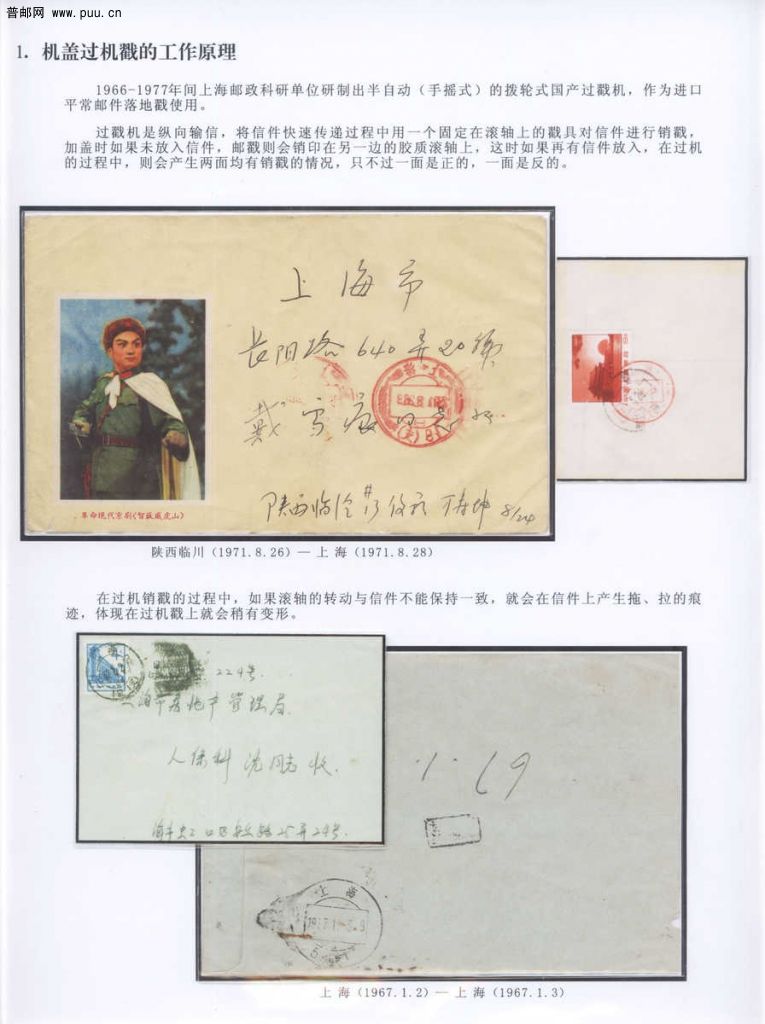 普邮网 www.puu.cn
1. 机盖过机戳的工作原理
1966-1977年间上海邮政科研单位研制出半自动（手摇式）的拨轮式国产过戳机，作为进口
平常邮件落地戳使用。
过戳机是纵向输信，将信件快速传递过程中用一个固定在滚轴上的戳具对信件进行销戳，
加盖时如果未放入信件，邮戳则会销印在另一边的胶质滚轴上，这时如果再有信件放入，在过机
的过程中，则会产生两面均有销戳的情况，只不过一面是正的，一面是反的。
上海市
長阳路 640弄20號
戴雪
陕西临
8/24
革命现代京剧《智取威虎山》
陕西临川（1971.8.26）— 上 海（1971.8.28）
在过机销戳的过程中，如果滚轴的转动与信件不能保持一致，就会在信件上产生拖、拉的痕
迹，体现在过机戳上就会稍有变形。
224号
海市房地产管理局
人保科 沈同志 收
25弄24号
1.69
上海
上 海（1967.1.2）— 上 海（1967.1.3）